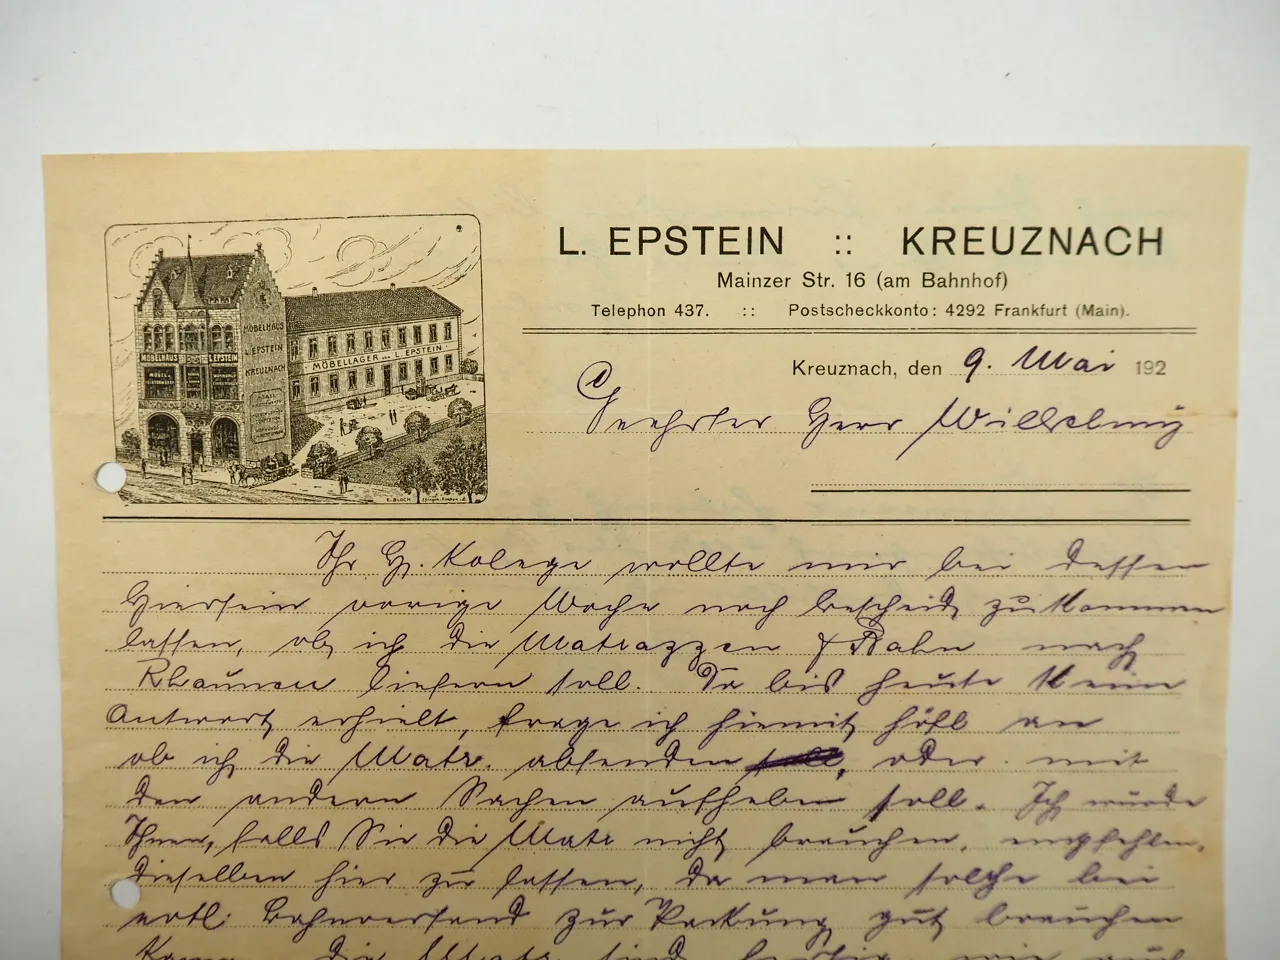 L. EPSTEIN :: KREUZNACH
Mainzer Str. 16 (am Bahnhof)
Telephon 437. :: Postscheckkonto: 4292 Frankfurt (Main).
MÖBELHAUS
L. EPSTEIN
KREUZNACH
MÖBELHAUS L. EPSTEIN
MÖBELLAGER von L. EPSTEIN
E. BLOCH
Kreuznach, den 9. Mai 192
Geehrter Herr
Ihr H. Kolege wollte mir bei dessen
Hiersein vorige Woche noch bescheid zukommen
lassen, ob ich die Matrazzen p Bahn nach
Rhaunen liefern soll. Da bis heute kein
Antwort erhielt, frage ich hiermit höfl an
ob ich die Matr. absenden, oder mit
den andern Sachen aufheben soll. Ich würde
Ihnen, falls Sie die Matr nicht brauchen, empfehlen,
dieselben hier zu lassen, da man solche bei
evtl. Bahnversand zur Packung gut brauchen
kann. die Matr. sind